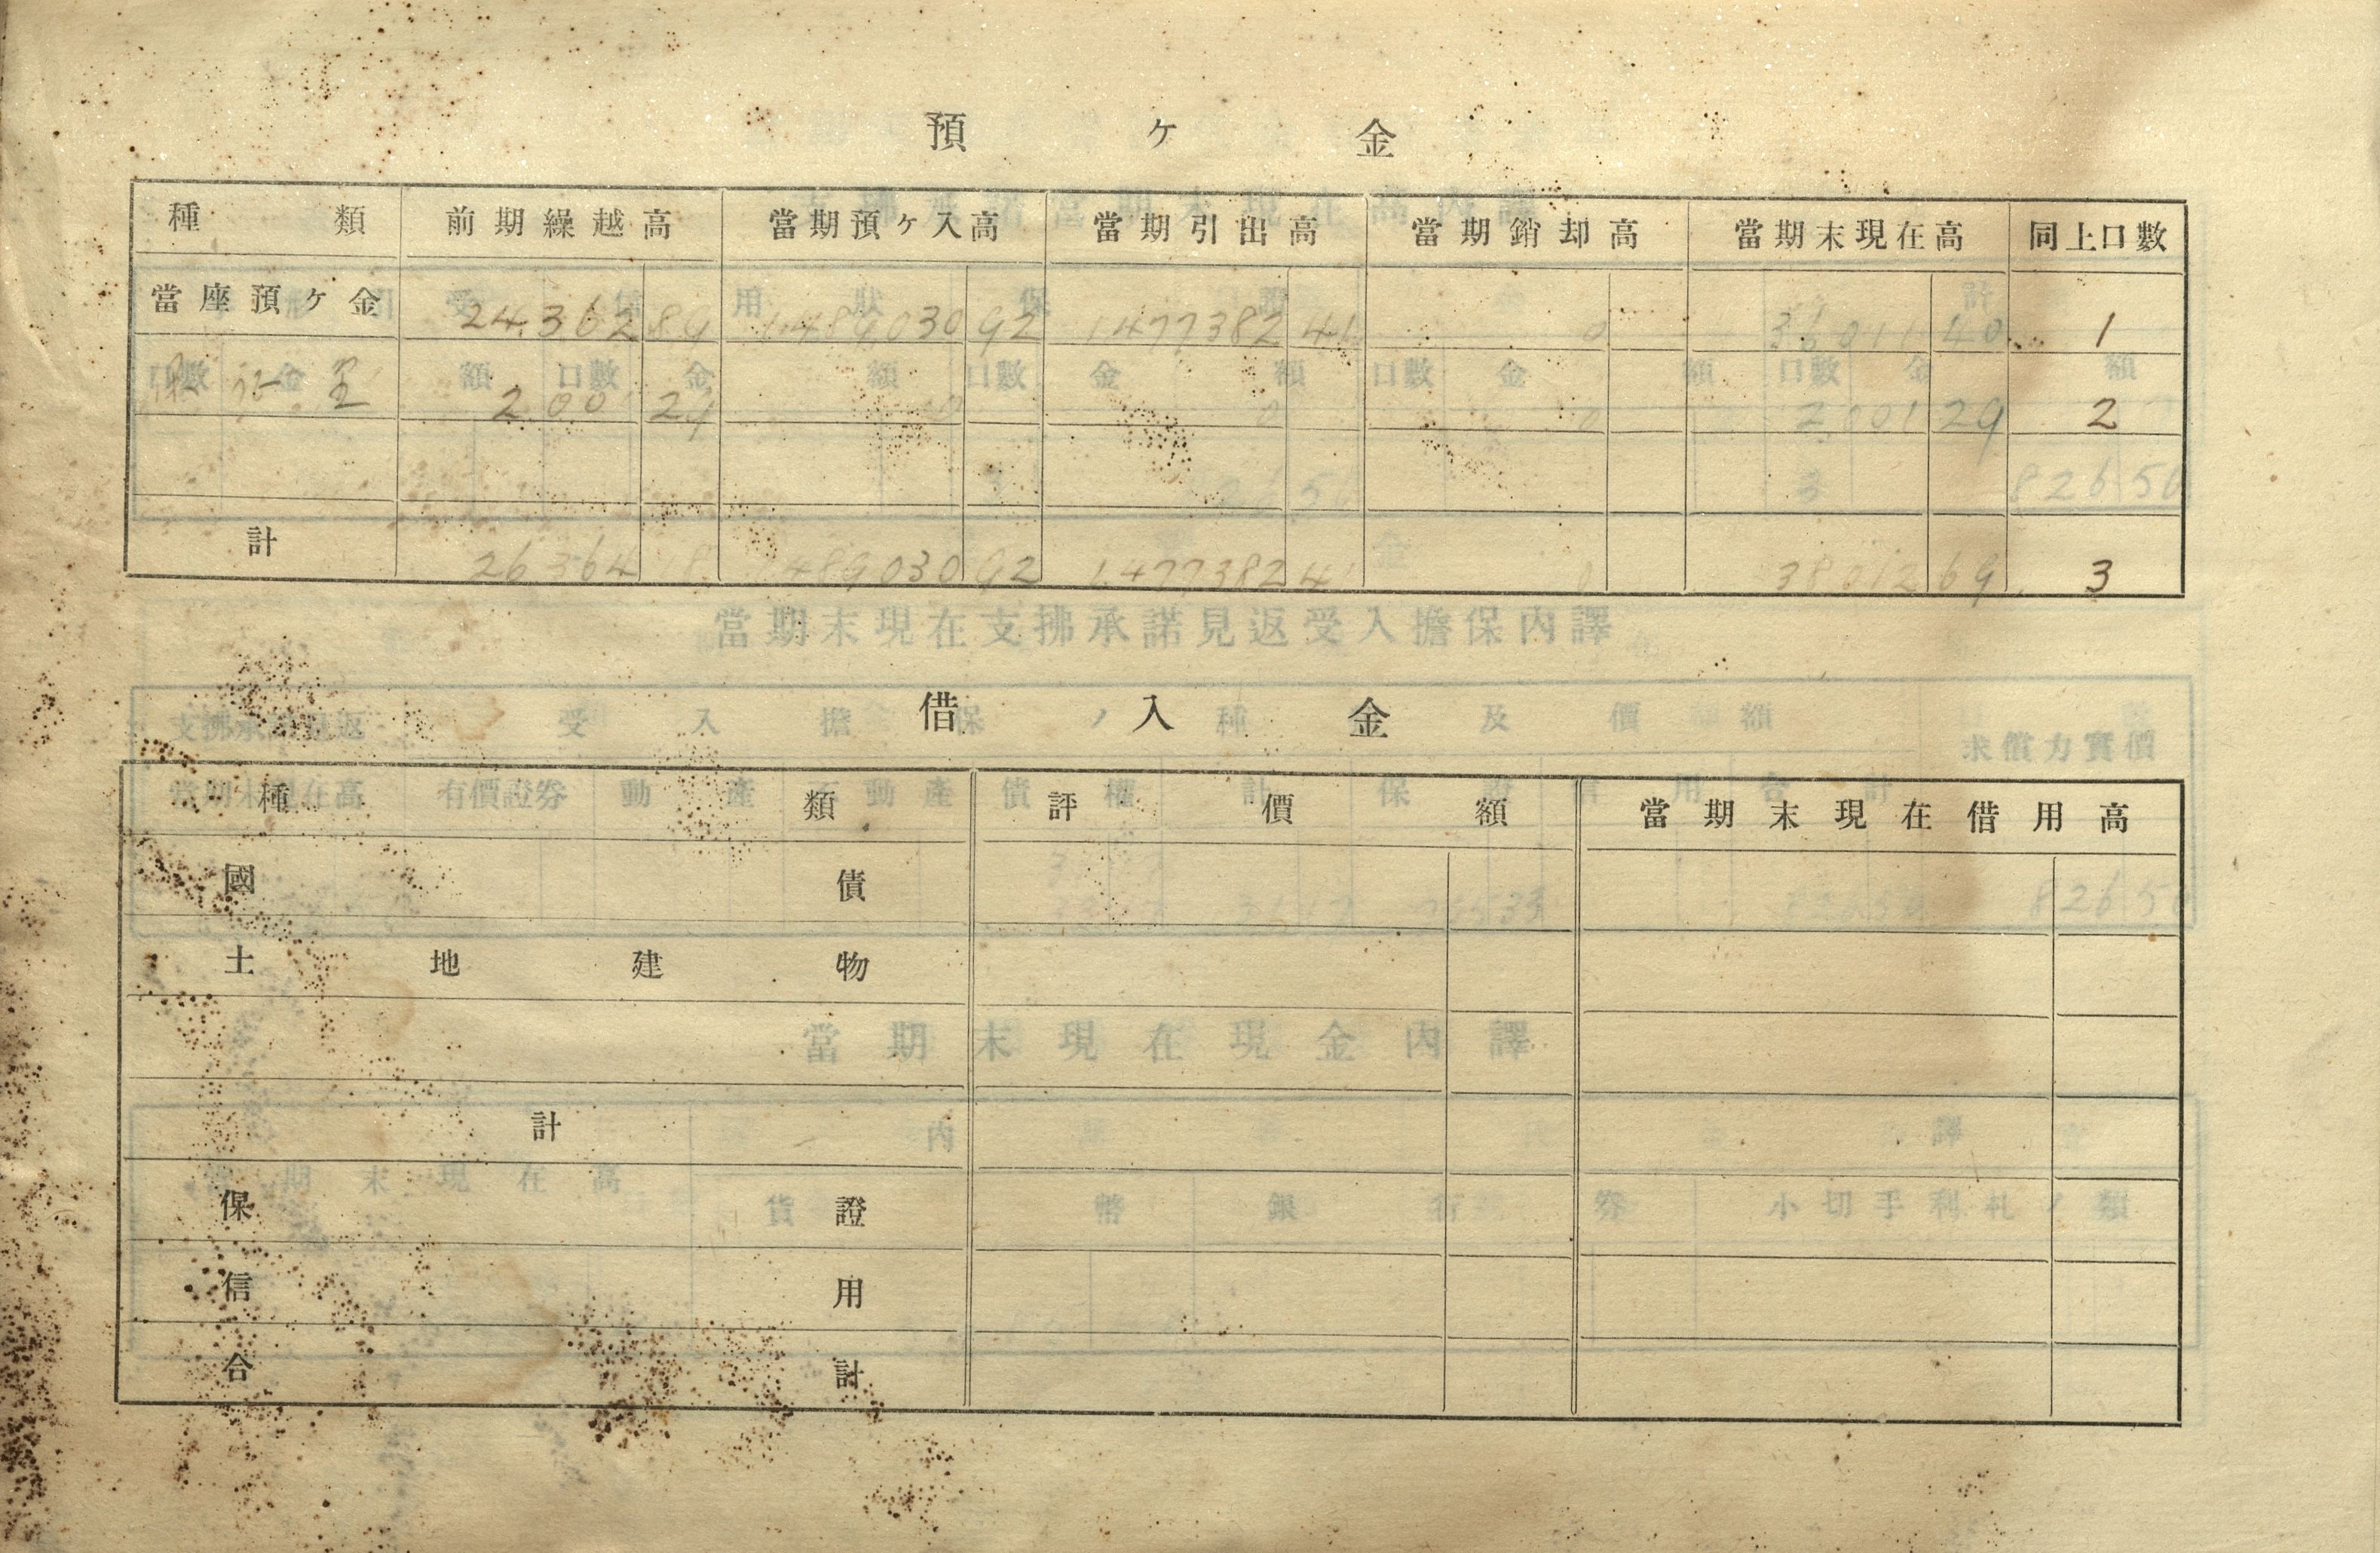 預ケ金
種類 前期繰越高 當期預ケ入高 當期引出高 當期銷却高 當期末現在高 同上口數
當座預ケ金 24,362 89 1,489,030 92 1,477,382 41 0 36,011 40 1
2,001 29 0 0 0 2,001 29 2
計 26,364 18 1,489,030 92 1,477,382 41 0 38,012 69 3
借入金
種類 評價額 當期末現在借用高
國債
土地建物
計
保證
信用
合計